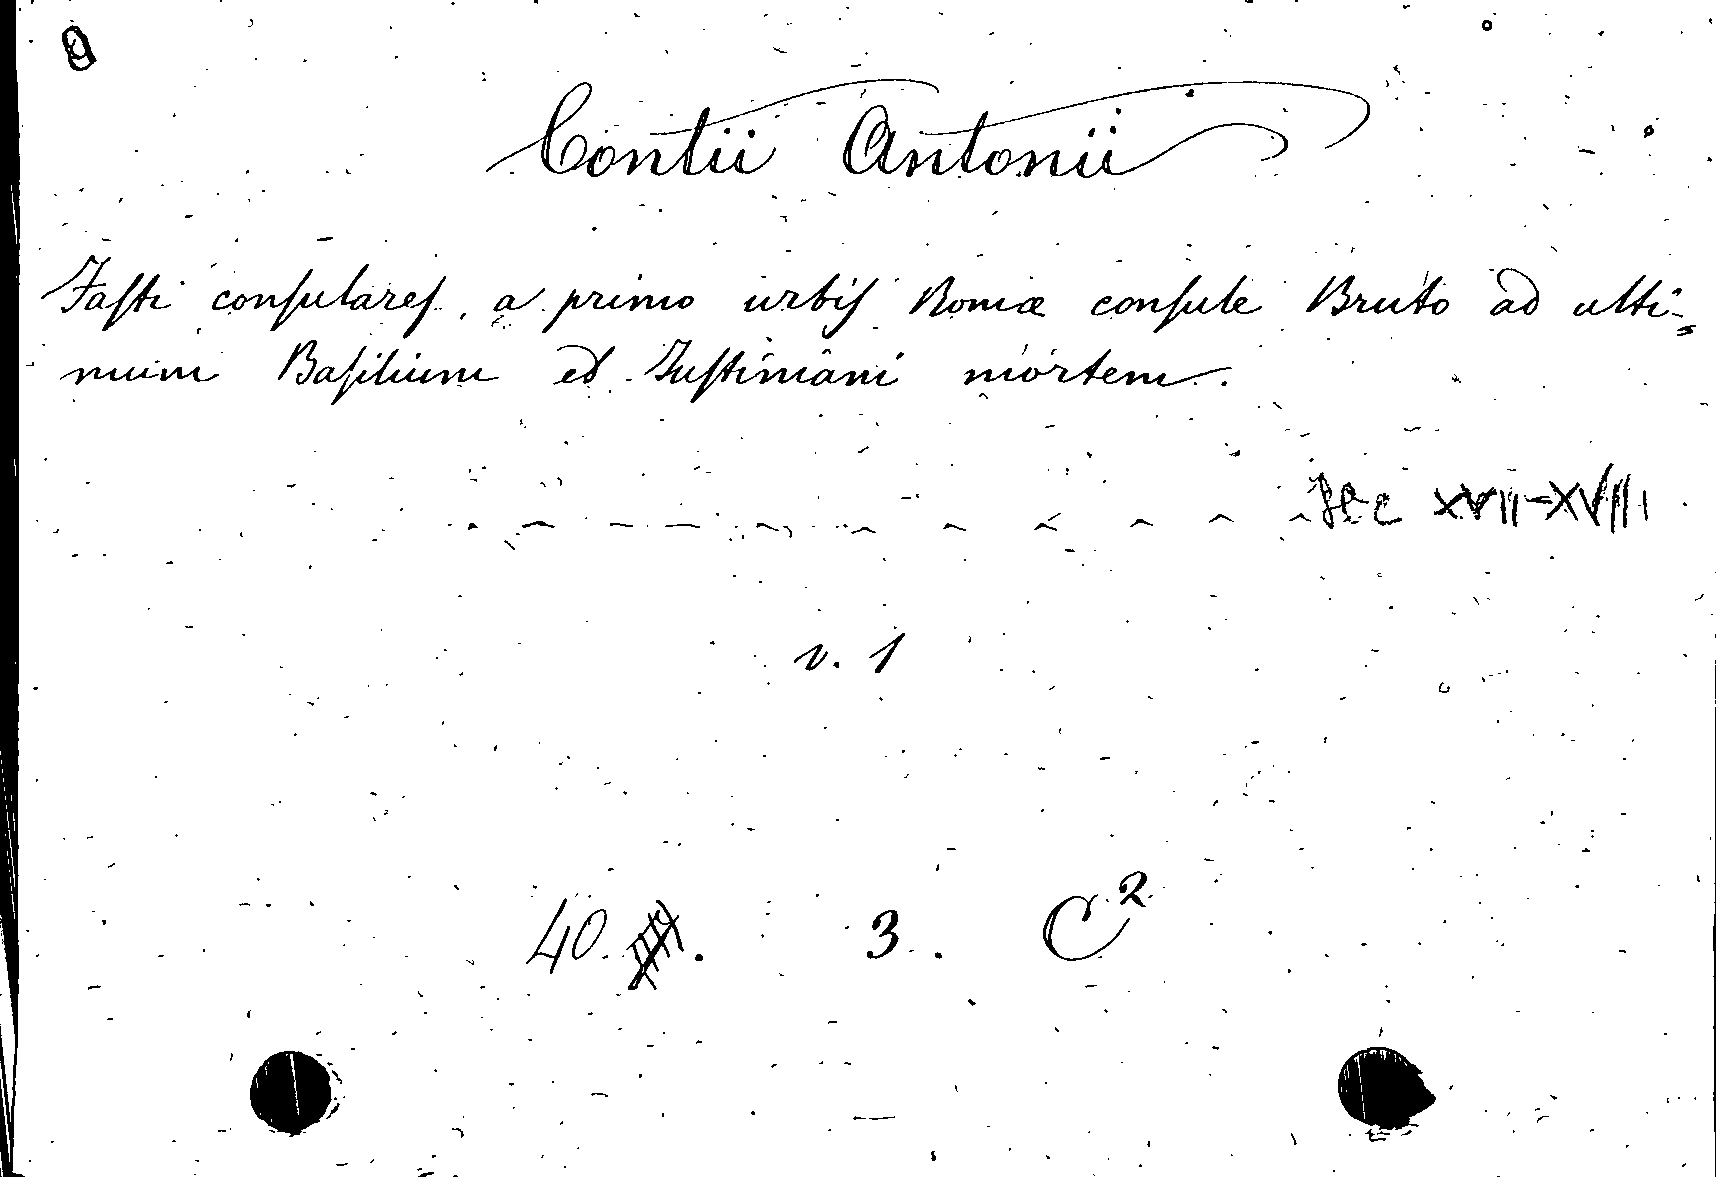 Contii Antonii
Faſti conſulareſ, a primo urbiſ Romæ conſule Bruto ad ulti-
mum Baſilium et Juſtiniani mortem.
Sec XVII-XVIII
v. 1
40. . 3. C²